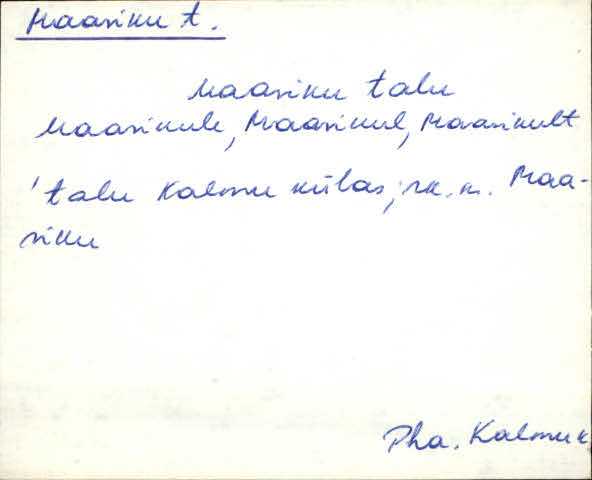 Maasiku t.
Maasiku talu
Maasikule, Maasikul, Maasikult
'talu Kalmu külas; rk. n. Maa-
siku
Pha. Kalmu k.